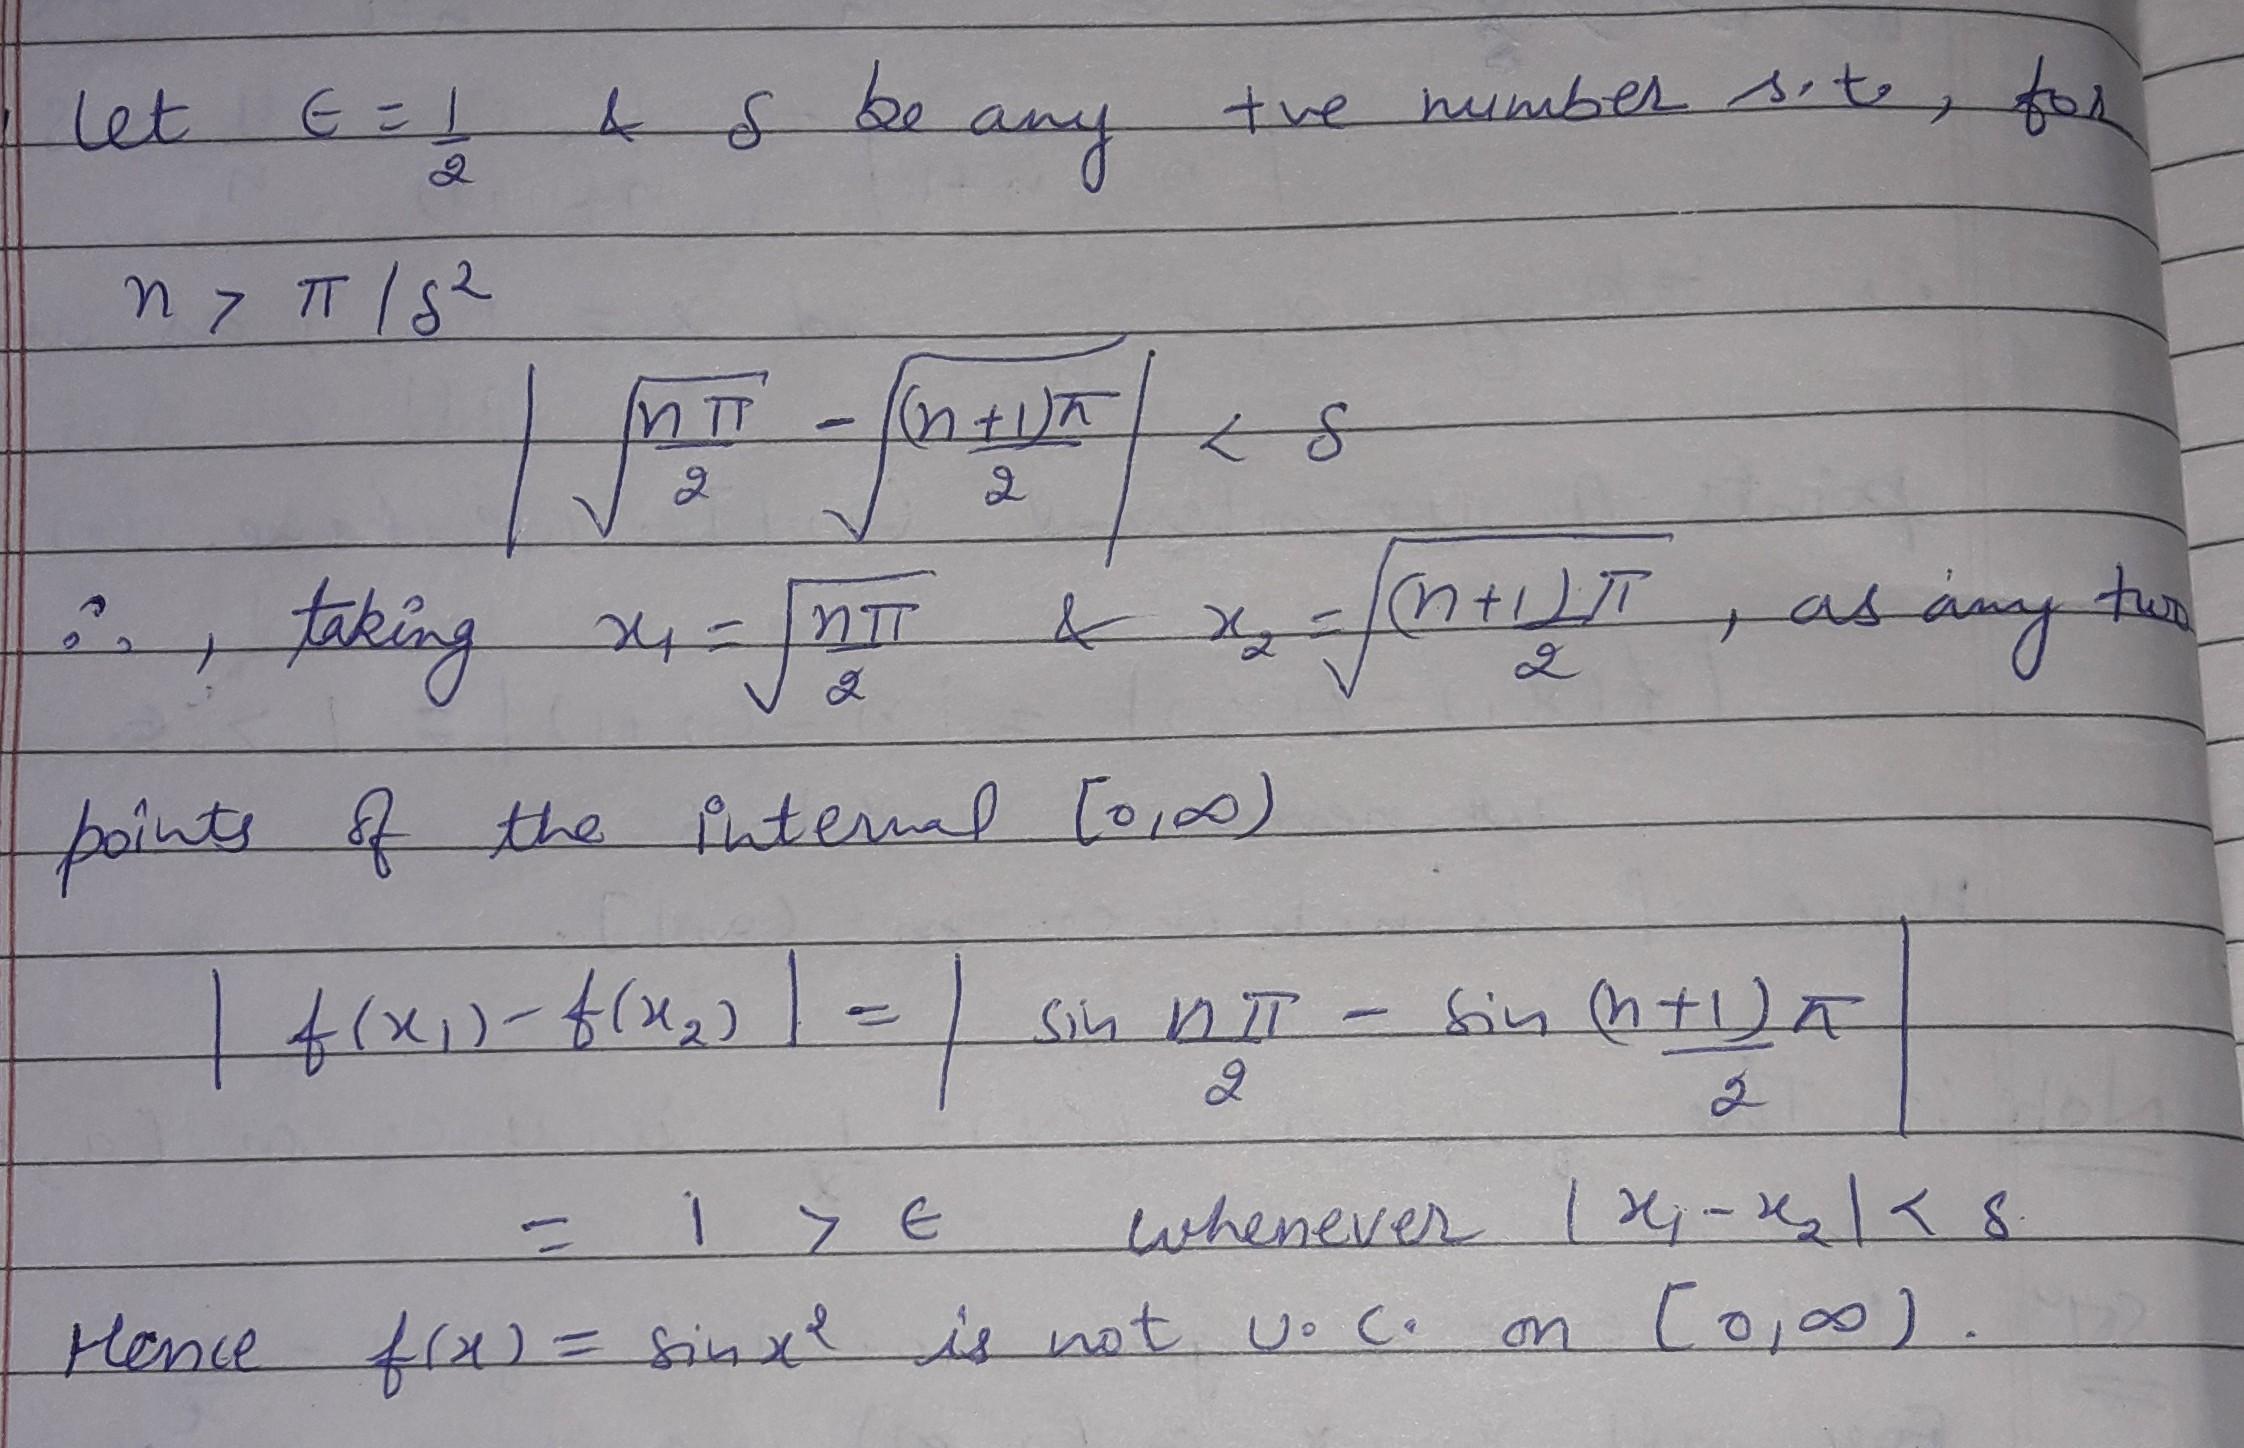 Let ϵ = 1/2 & δ be any +ve number s.t., for
n > π/δ²
| √(nπ/2) - √((n+1)π/2) | < δ
∴, taking x₁ = √(nπ/2) & x₂ = √((n+1)π/2), as any two
points of the interval [0,∞)
| f(x₁) - f(x₂) | = | sin nπ/2 - sin (n+1)π/2 |
= 1 > ϵ whenever |x₁ - x₂| < δ.
Hence f(x) = sin x² is not U.C. on [0,∞).